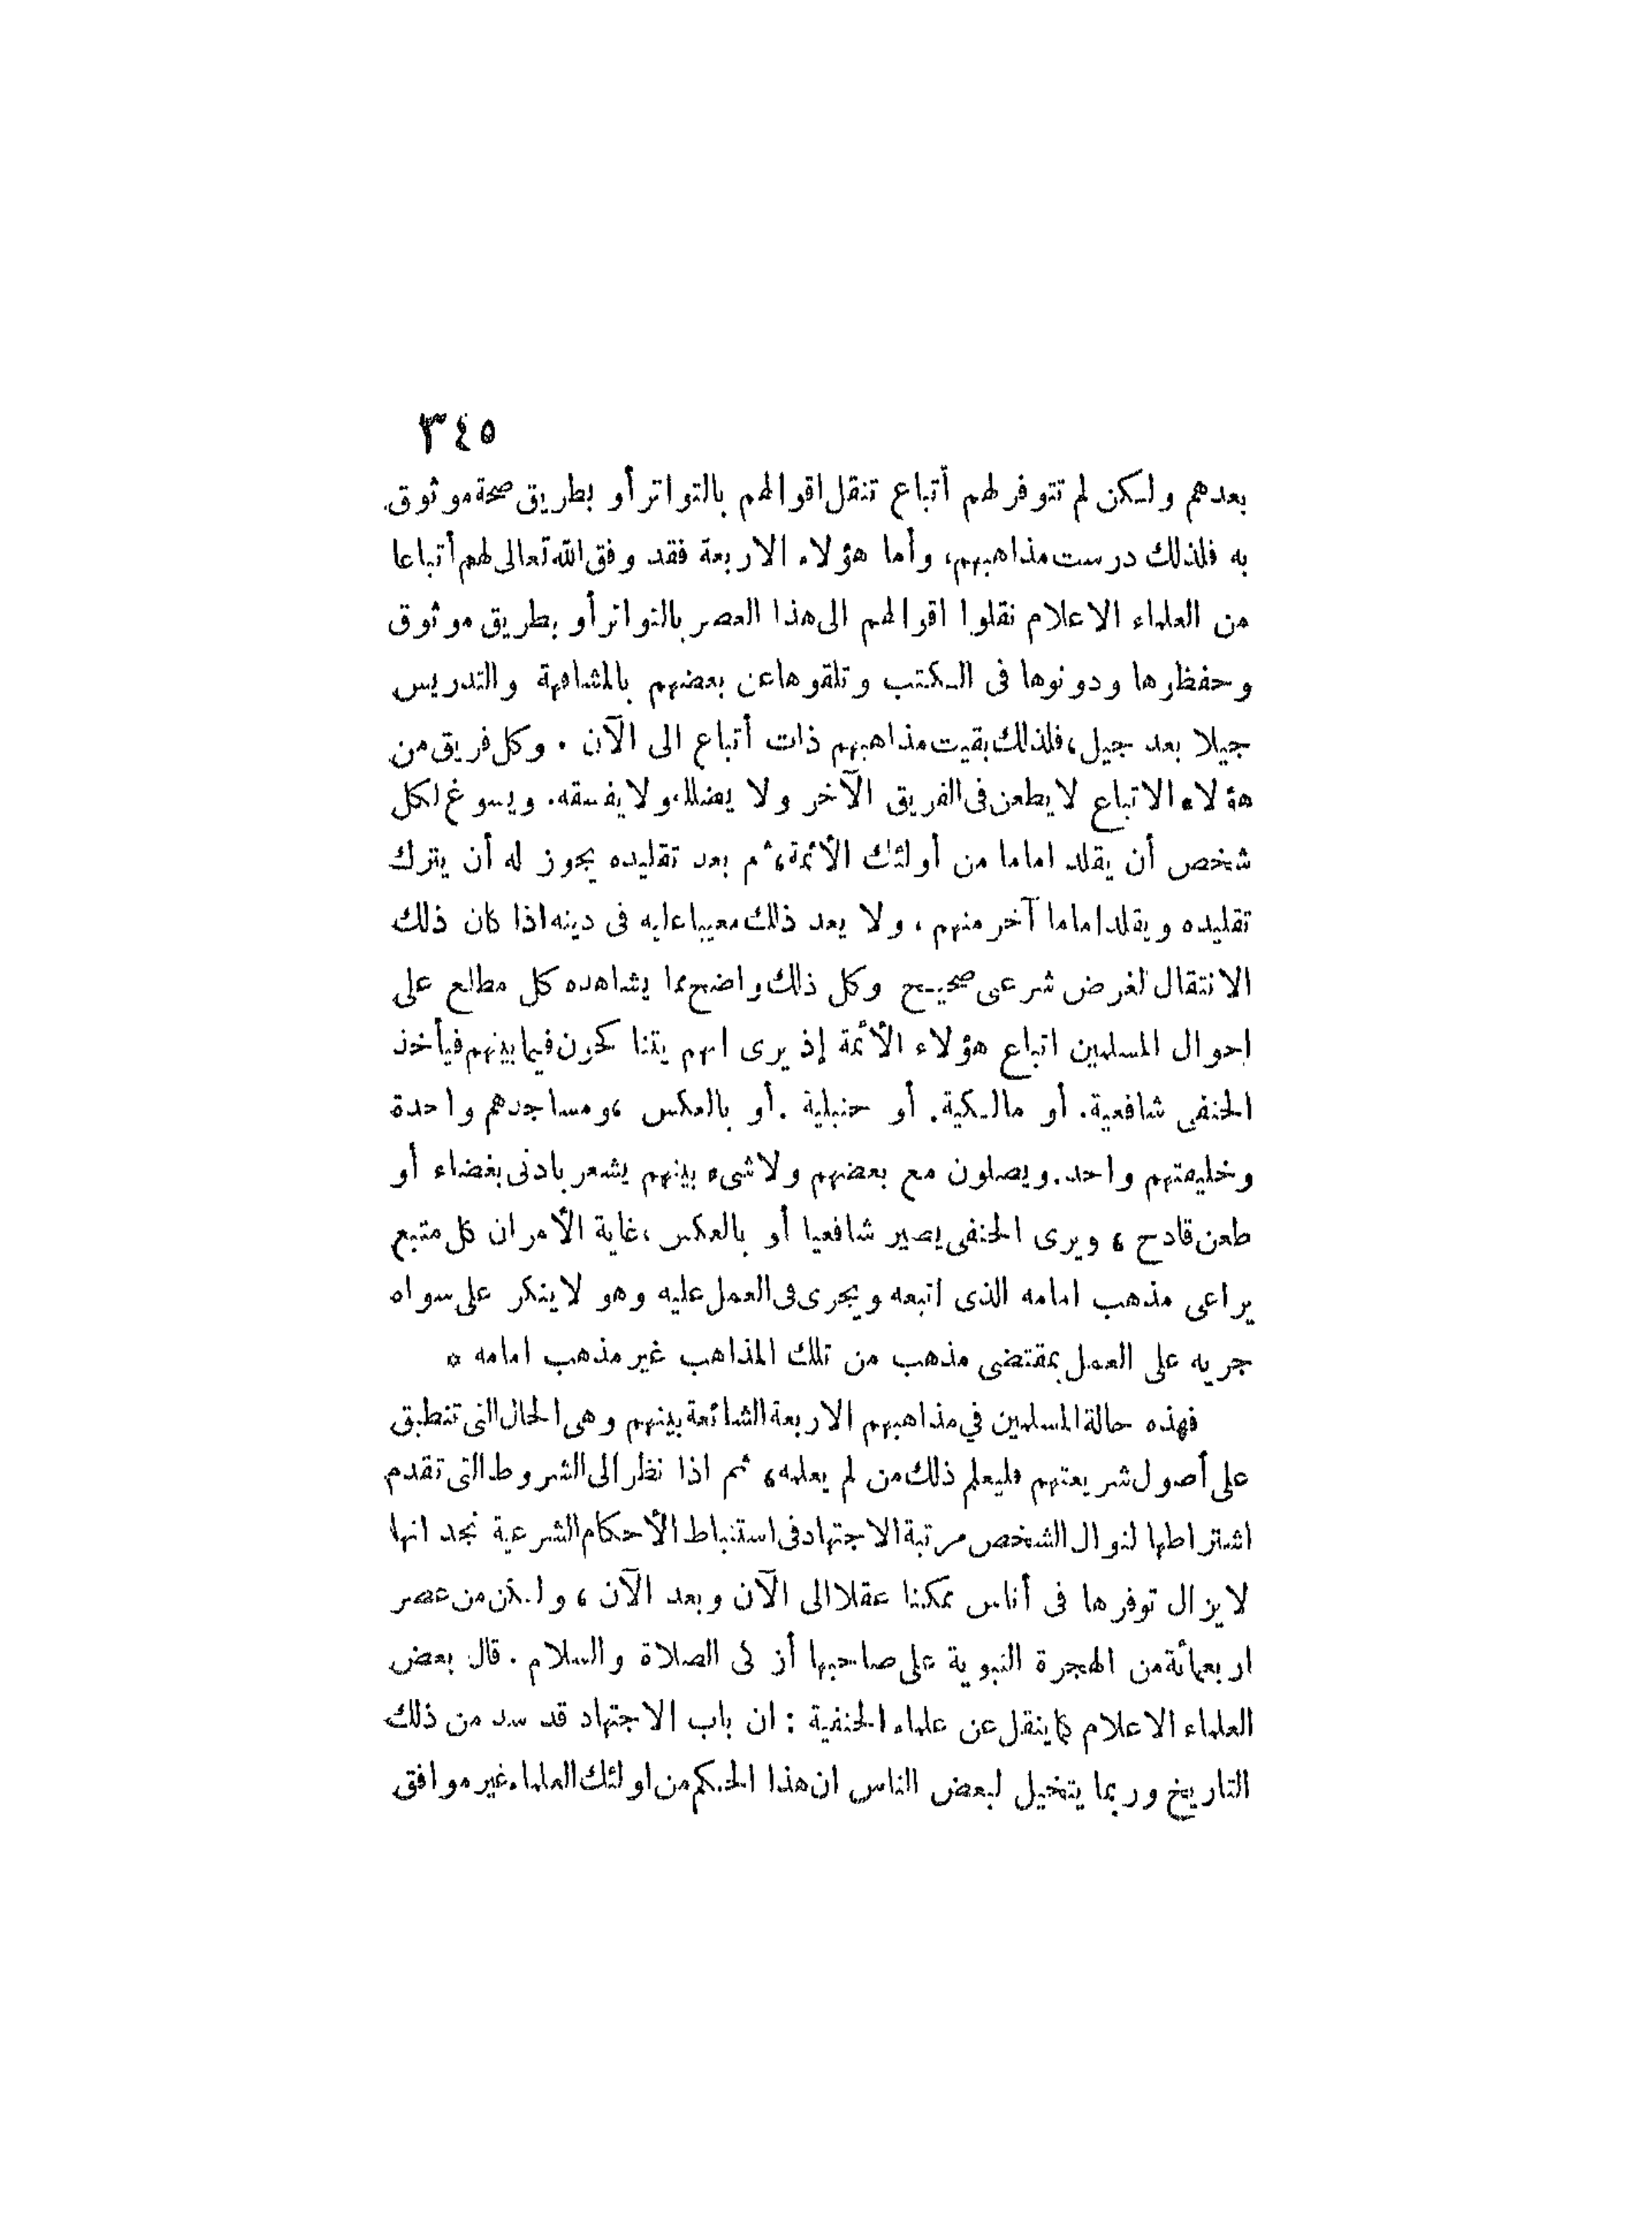 ٣٤٥
بعدهم ولكن لم تتوفر لهم أتباع تنقل اقوالهم بالتواتر أو بطريق صحة موثوق
به فلذلك درست مذاهبهم، وأما هؤلاء الاربعة فقد وفق الله تعالى لهم أتباعا
من العلماء الاعلام نقلوا اقوالهم الى هذا العصر بالتواتر أو بطريق موثوق
وحفظوها ودونوها فى الكتب وتلقوها عن بعضهم بالمشافهة والتدريس
جيلا بعد جيل، فلذلك بقيت مذاهبهم ذات أتباع الى الآن . وكل فريق من
هؤلاء الاتباع لا يطعن فى الفريق الآخر ولا يضلله ولا يفسقه. ويسوغ لكل
شخص أن يقلد اماما من أولئك الأئمة، ثم بعد تقليده يجوز له أن يترك
تقليده ويقلد اماما آخر منهم ، ولا يعد ذلك معيبا عليه فى دينه اذا كان ذلك
الانتقال لغرض شرعى صحيح وكل ذلك واضح مما يشاهده كل مطلع على
احوال المسلمين اتباع هؤلاء الأئمة إذ يرى انهم يتناكحون فيما بينهم فيأخذ
الحنفى شافعية. أو مالكية. أو حنبلية .أو بالعكس ،ومساجدهم واحدة
وخليفتهم واحد. ويصلون مع بعضهم ولا شىء بينهم يشعر بادنى بغضاء أو
طعن قادح ، ويرى الحنفى يصير شافعيا أو بالعكس ،غاية الأمر ان كل متبع
يراعى مذهب امامه الذى اتبعه ويجرى فى العمل عليه وهو لا ينكر على سواه
جريه على العمل بمقتضى مذهب من تلك المذاهب غير مذهب امامه ¤
فهذه حالة المسلمين في مذاهبهم الاربعة الشائعة بينهم وهى الحال التى تنطبق
على أصول شريعتهم فليعلم ذلك من لم يعلمه، ثم اذا نظر الى الشروط التى تقدم
اشتراطها لنوال الشخص مرتبة الاجتهاد فى استنباط الأحكام الشرعية نجد انها
لا يزال توفرها فى أناس ممكنا عقلا الى الآن وبعد الآن ، ولكن من عصر
اربعمائة من الهجرة النبوية على صاحبها أزكى الصلاة والسلام . قال بعض
العلماء الاعلام كما ينقل عن علماء الحنفية : ان باب الاجتهاد قد سد من ذلك
التاريخ وربما يتخيل لبعض الناس ان هذا الحكم من اولئك العلماء غير موافق